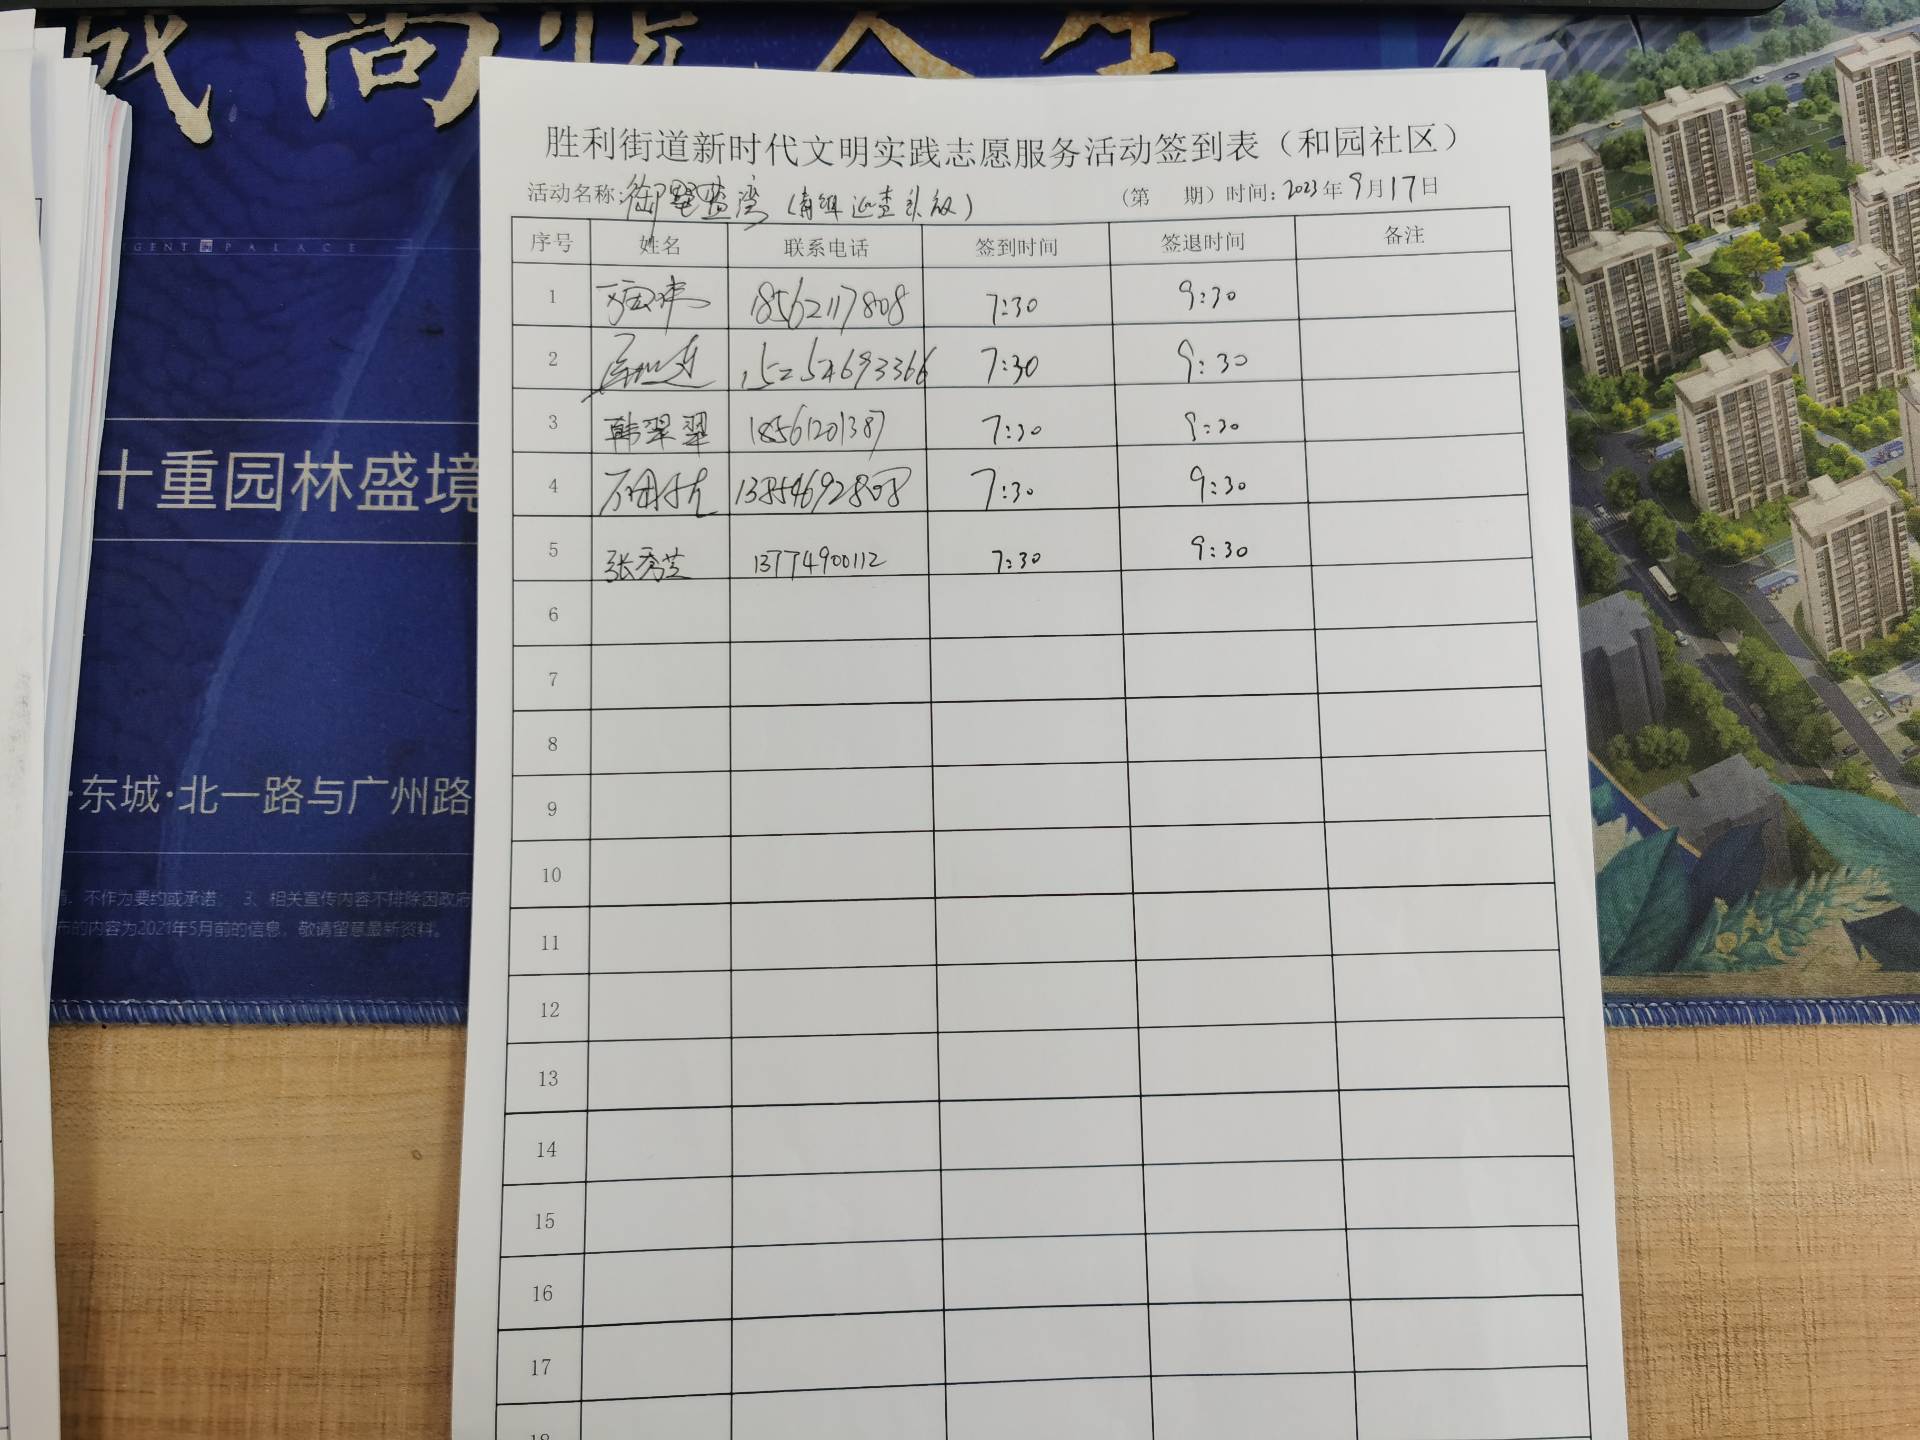 尚 悦 人 生
GENT PALACE
十重园林盛境
·东城·北一路与广州路
不作为要约或承诺; 3、相关宣传内容不排除因政府
布的内容为2021年5月前的信息,敬请留意最新资料。
胜利街道新时代文明实践志愿服务活动签到表(和园社区)
活动名称: (第 期)时间: 2023年9月17日
序号 姓名 联系电话 签到时间 签退时间 备注
1 18562117808 7:30 9:30
2 15254693366 7:30 9:30
3 韩翠翠 18561201387 7:30 9:30
4 13854692808 7:30 9:30
5 张秀芝 13774900112 7:30 9:30
6
7
8
9
10
11
12
13
14
15
16
17
18